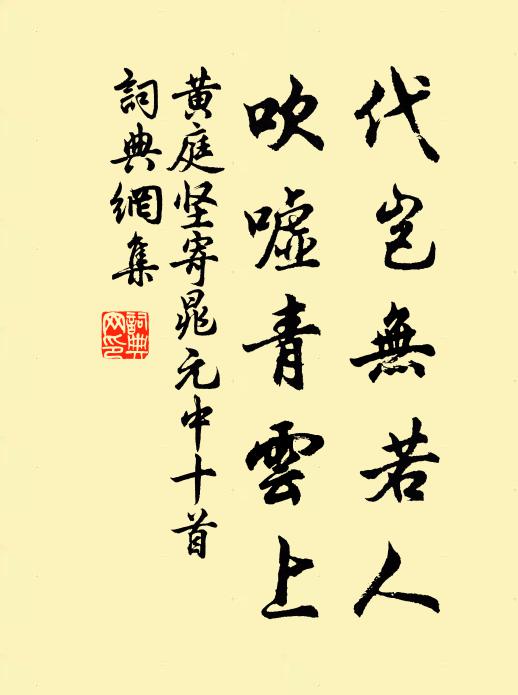 代豈無若人
吹噓青雲上
黄庭坚寄晁元中十首
詞典網集
詞典網印